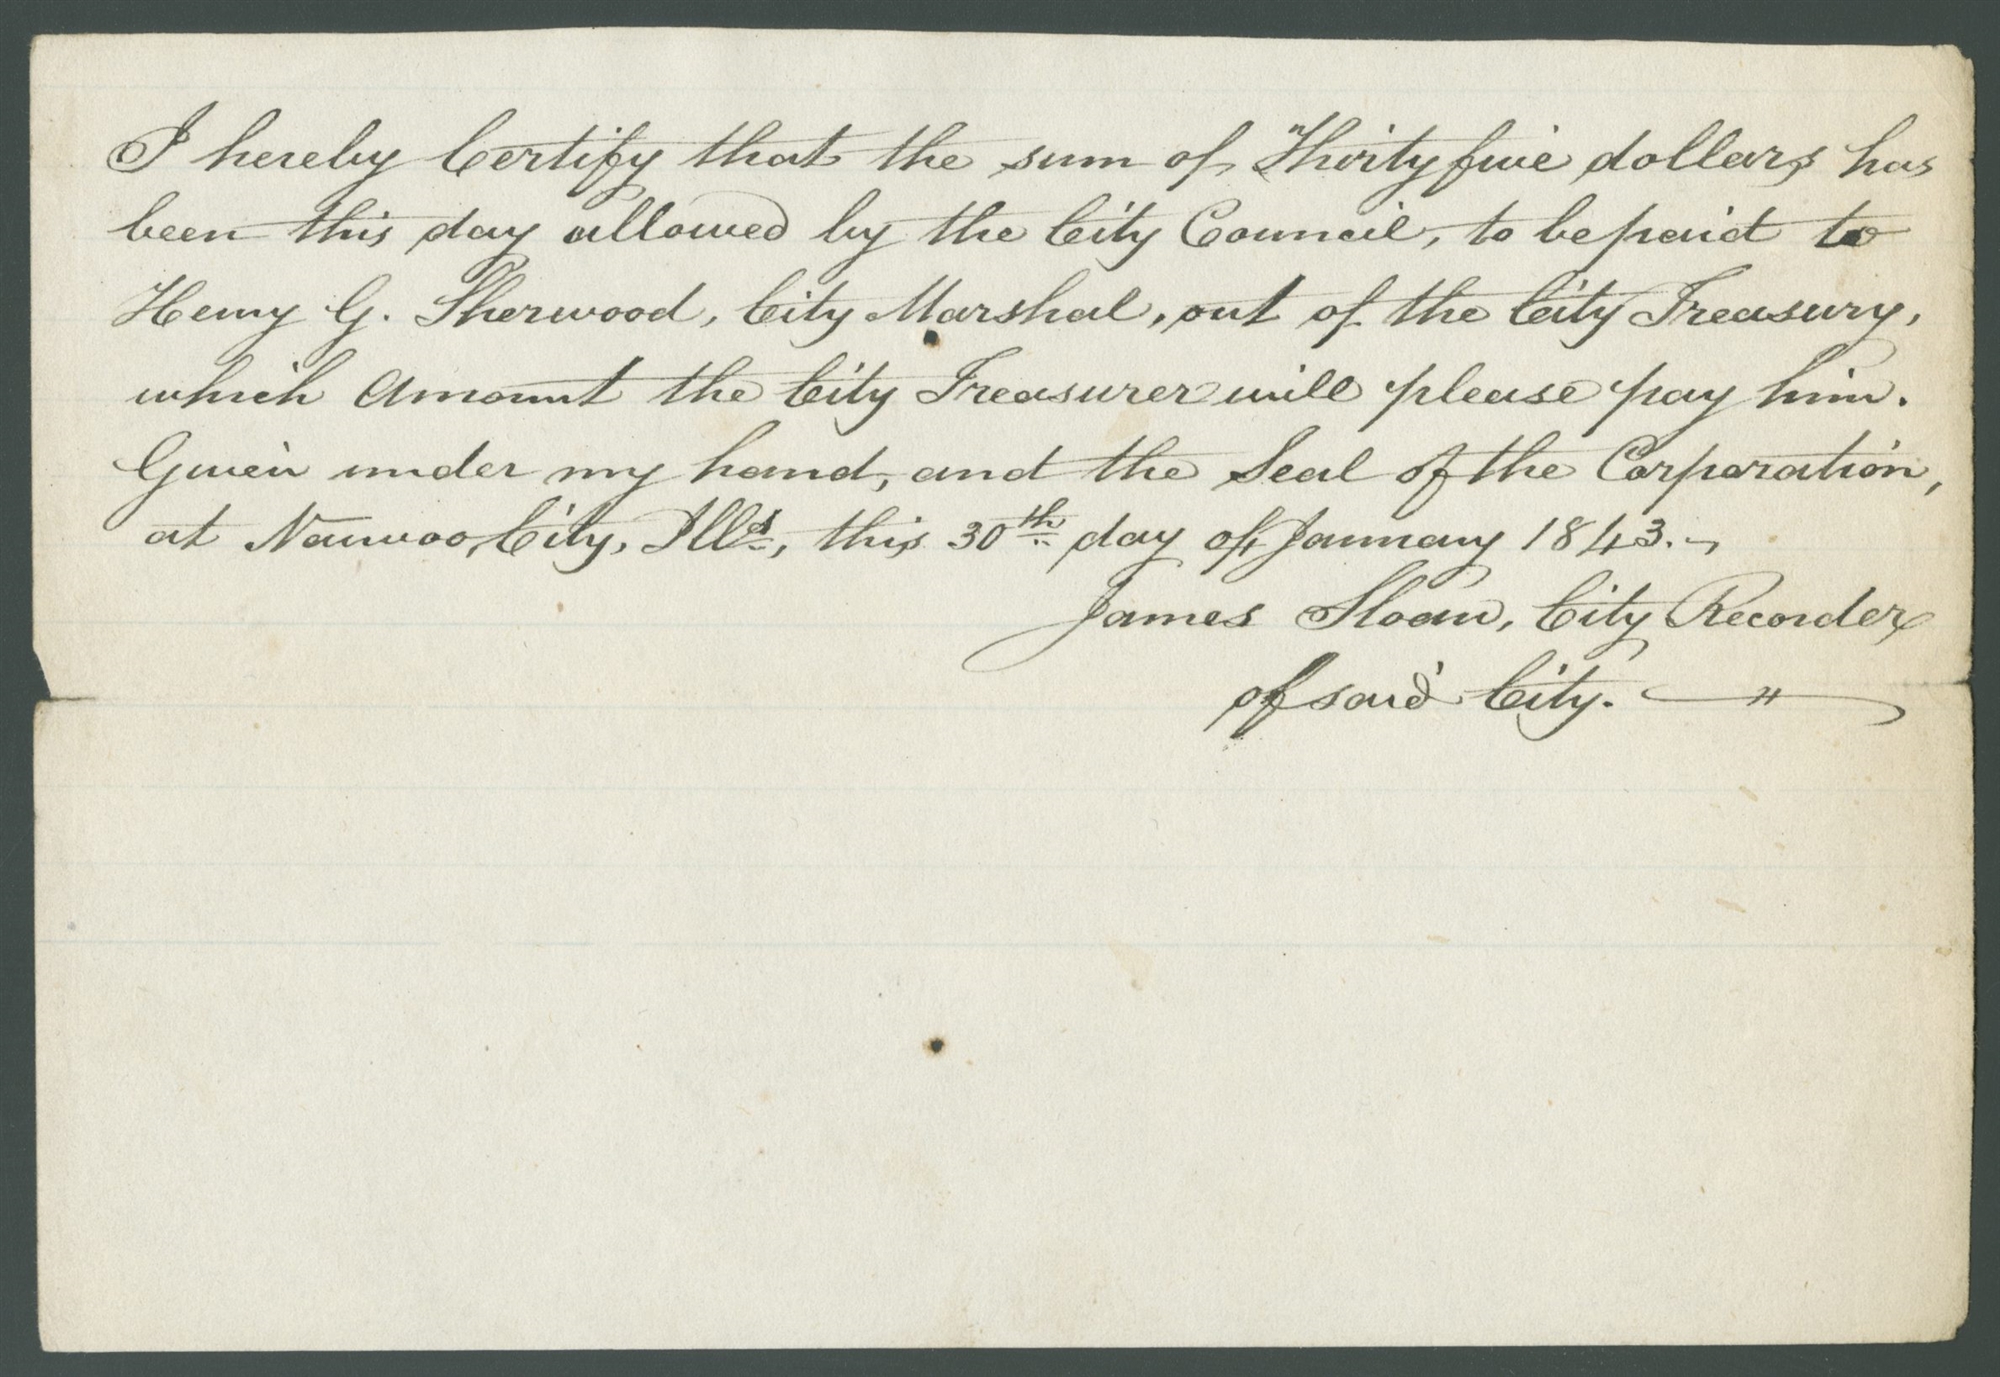 I hereby Certify that the sum of Thirty five dollars has
been this day allowed by the City Council, to be paid to
Henry G. Sherwood, City Marshal, out of the City Treasury,
which Amount the City Treasurer will please pay him.
Given under my hand, and the Seal of the Corporation,
at Nauvoo City, Ills, this 30th day of January 1843.
James Sloan, City Recorder
of said City.